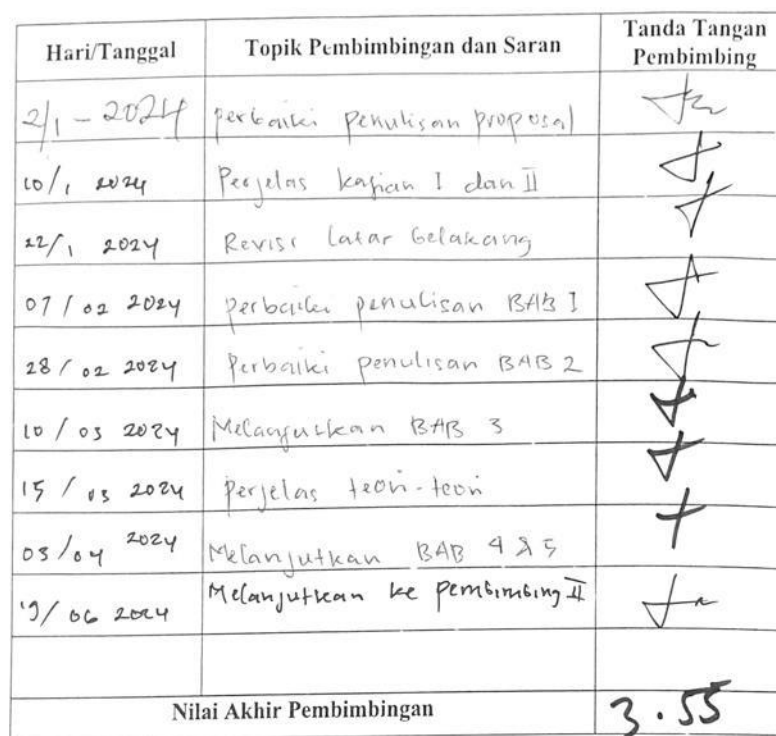 Hari/Tanggal Topik Pembimbingan dan Saran Tanda Tangan
Pembimbing
2/1 - 2024 perbaiki penulisan proposal
10/1 2024 Perjelas kajian I dan II
22/1 2024 Revisi latar belakang
07/02 2024 perbaiki penulisan BAB I
28/02 2024 Perbaiki penulisan BAB 2
10/03 2024 Melanjutkan BAB 3
15/03 2024 perjelas teori-teori
03/04 2024 Melanjutkan BAB 4 & 5
/06 2024 Melanjutkan ke pembimbing II
Nilai Akhir Pembimbingan 3.55